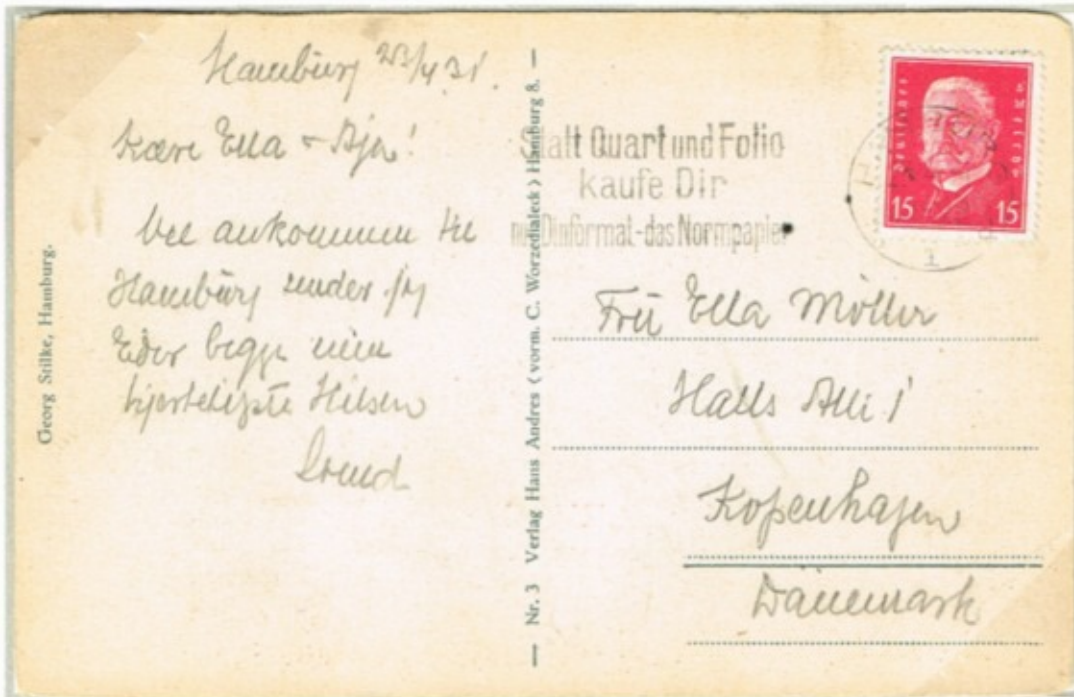 Hamburg 23/4 31.
Kære Ella + Aja!
Ved ankommen til
Hamburg sender jeg
Eder begge min
hjerteligste Hilsen
Georg Stilke, Hamburg.
— Nr. 3 Verlag Hans Andres (vorm. C. Worzedialeck) Hamburg 8. —
Statt Quart und Folio
kaufe Dir
nur Dinformat-das Normpapier
Deutsches Reich
15 15
Frü Ella Möller
Halls Alle 1
Kopenhagen
Dänemark